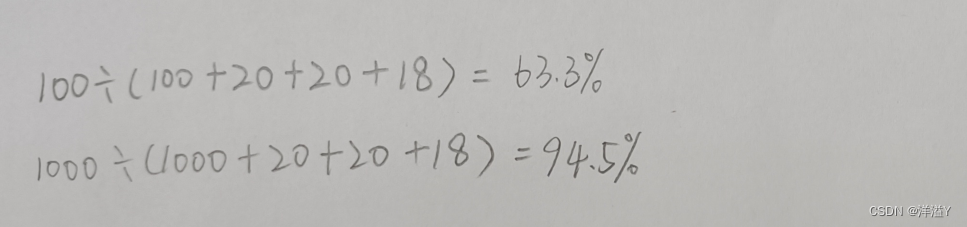 100÷(100+20+20+18)= 63.3%
1000÷(1000+20+20+18)=94.5%
CSDN @洋溢Y